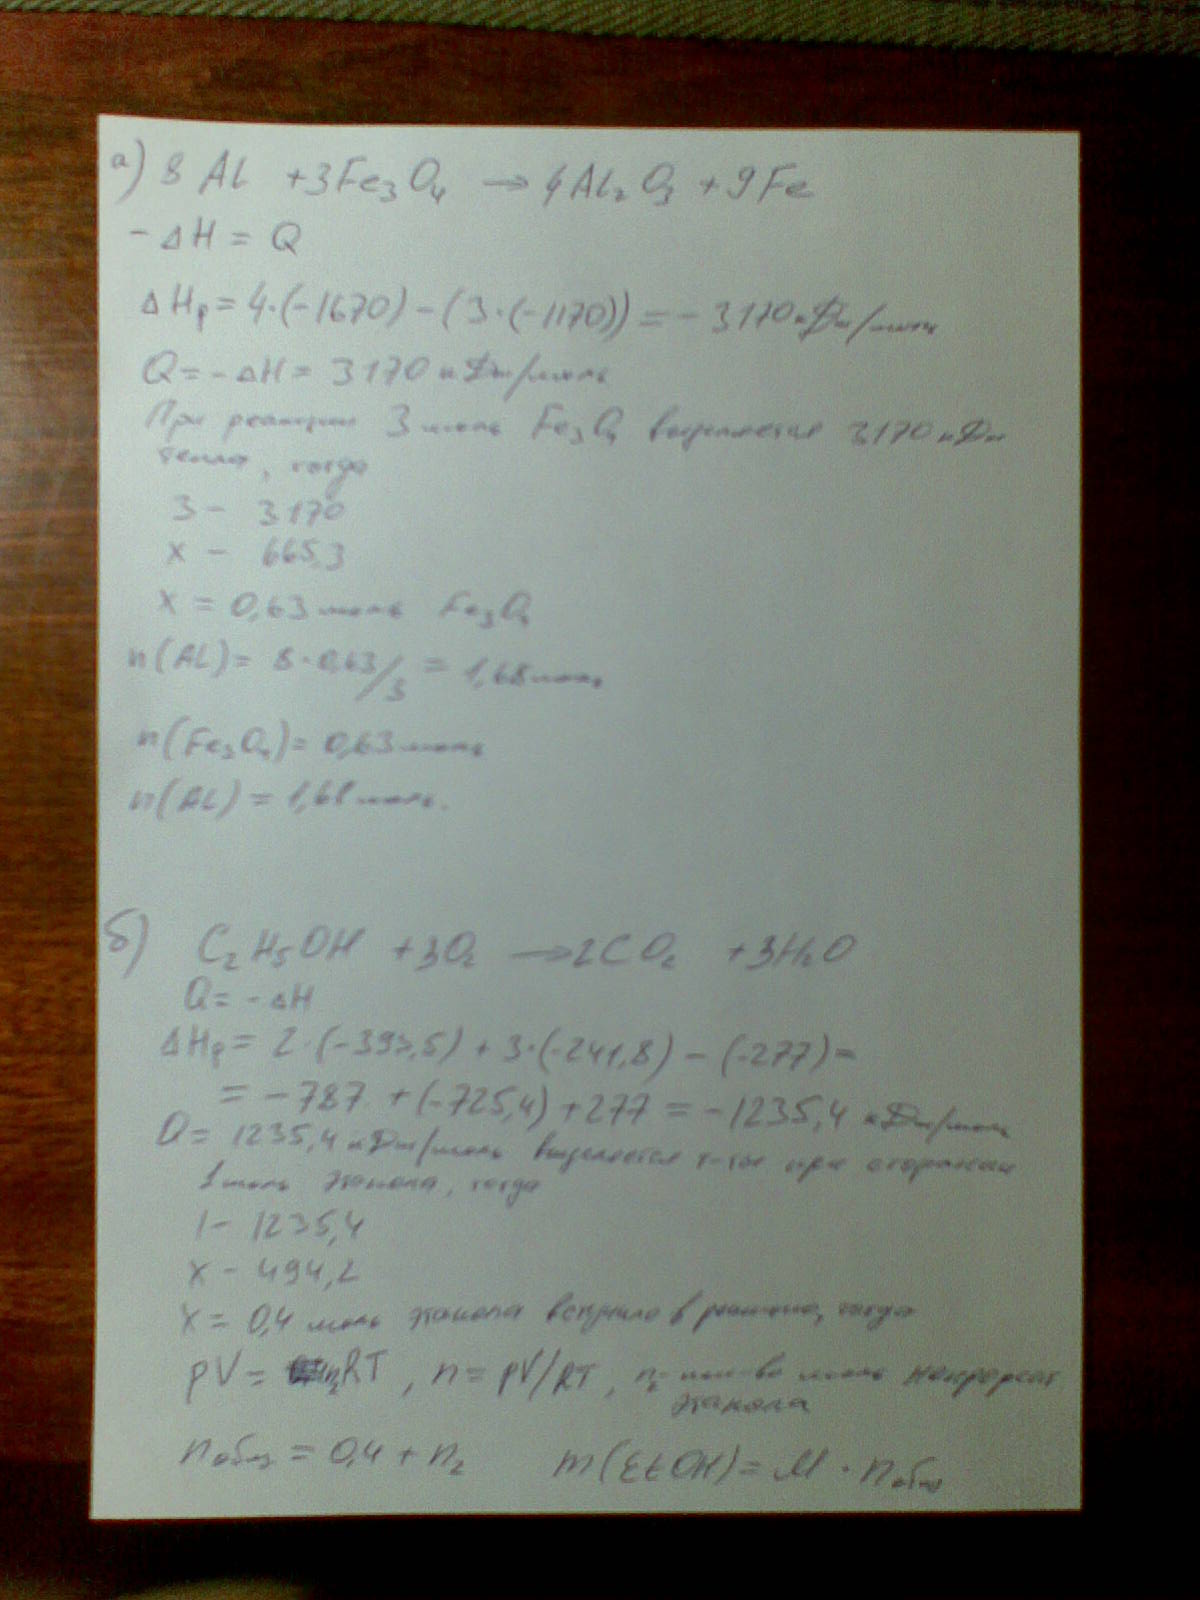 а) 8Al + 3Fe₃O₄ → 4Al₂O₃ + 9Fe
-ΔH = Q
ΔHр = 4·(-1670) - (3·(-1170)) = -3170 кДж/моль
Q = -ΔH = 3170 кДж/моль
При реакции 3 моль Fe₃O₄ выделяется 3170 кДж
тепла, тогда
3 - 3170
x - 665,3
x = 0,63 моль Fe₃O₄
n(Al) = 8·0,63/3 = 1,68 моль
n(Fe₃O₄) = 0,63 моль
n(Al) = 1,68 моль.
б) C₂H₅OH + 3O₂ → 2CO₂ + 3H₂O
Q = -ΔH
ΔHр = 2·(-393,5) + 3·(-241,8) - (-277) =
= -787 + (-725,4) + 277 = -1235,4 кДж/моль
Q = 1235,4 кДж/моль выделяется т-ты при сгорании
1 моль этанола, тогда
1 - 1235,4
x - 494,2
x = 0,4 моль этанола вступило в реакцию, тогда
pV = n₂RT, n = pV/RT, n₂ - кол-во моль непрореаг
этанола
nобщ = 0,4 + n₂ m(EtOH) = M · nобщ